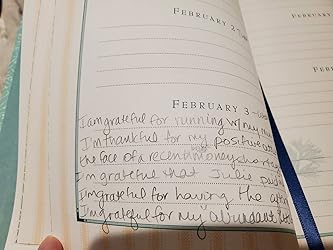 FEBRUARY 2
FEBRUARY 3
I am grateful for running w/ my
I'm thankful for my positive
the face of a recent money
I'm grateful that Julie
I'm grateful for having the
I'm grateful for my abundant